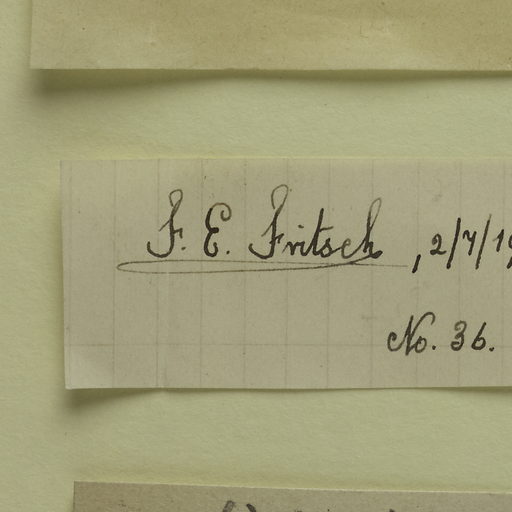 F. E. Fritsch, 2/7/19
No. 36.